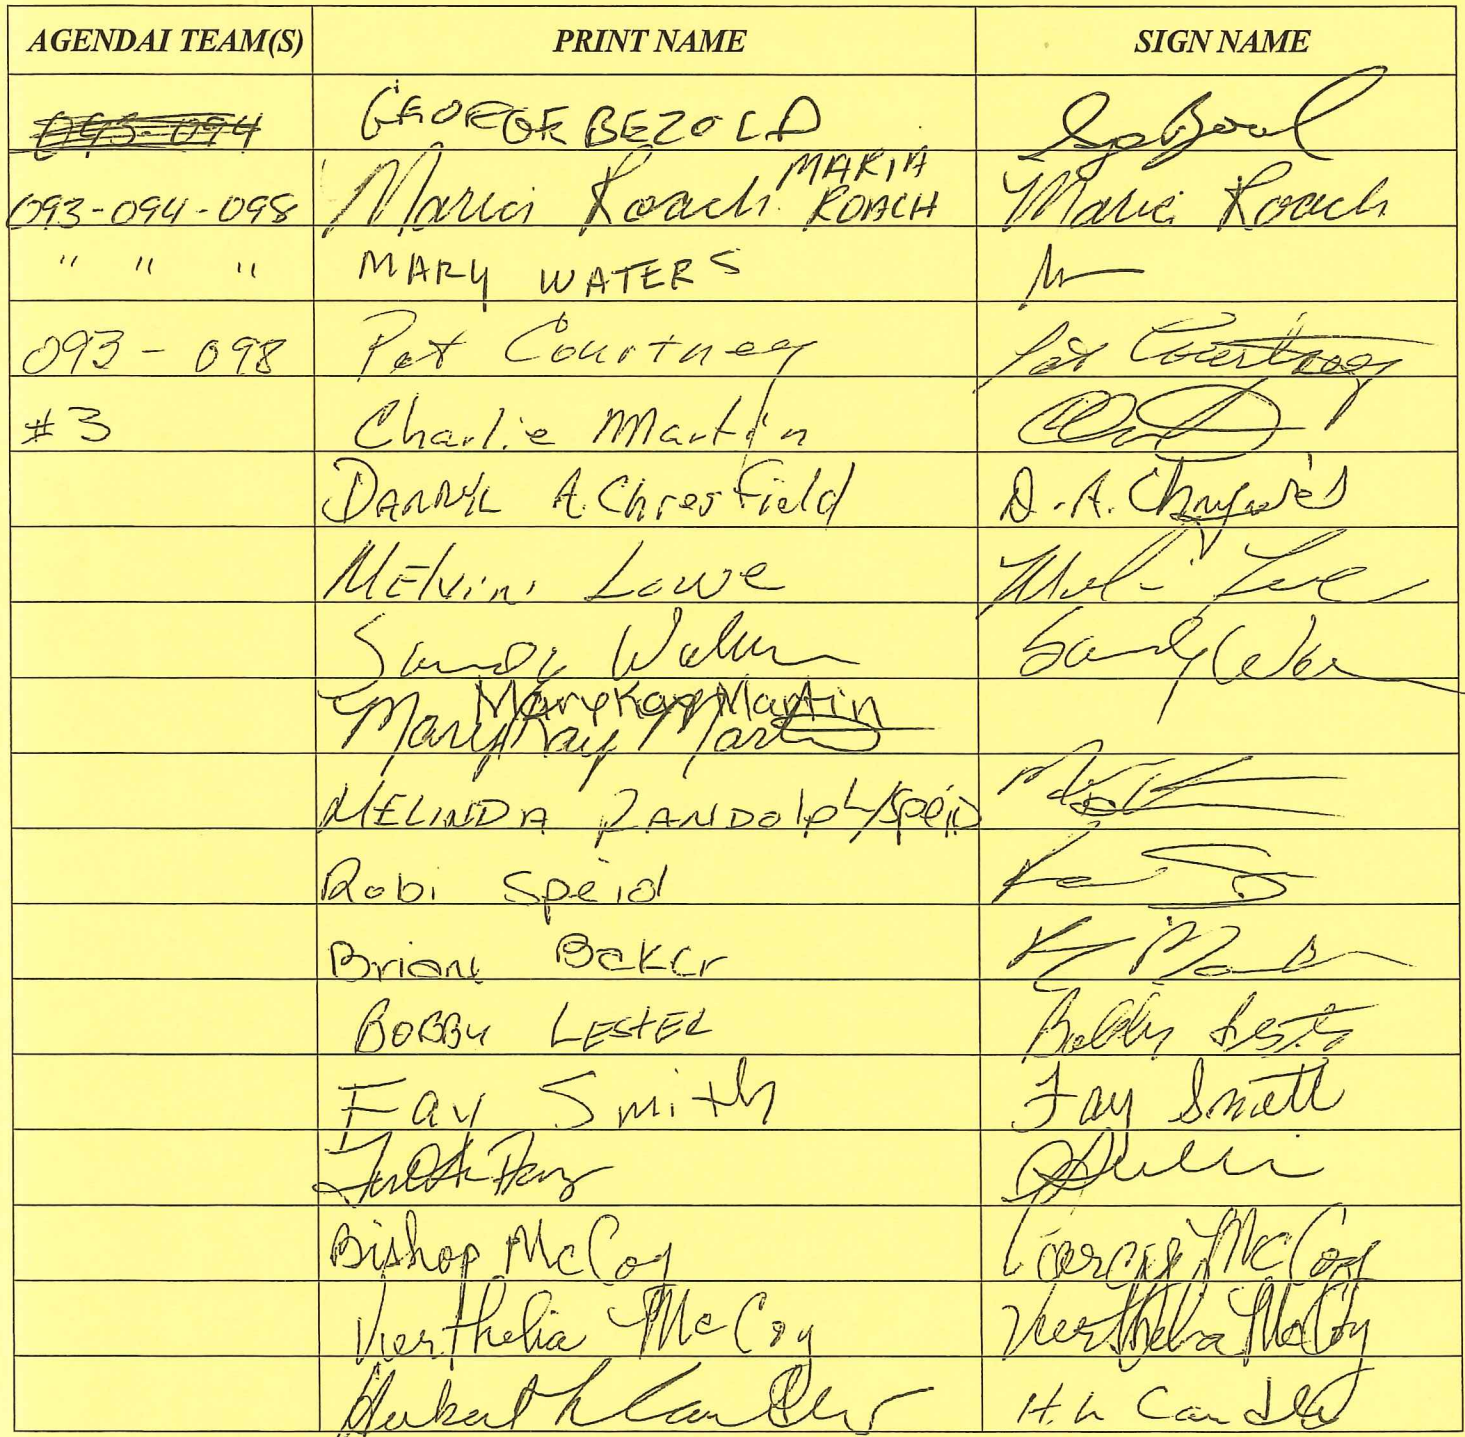 AGENDAI TEAM(S) PRINT NAME SIGN NAME
093-094 GEORGE BEZOLD
093-094-098 Maria Roach MARIA ROACH Maria Roach
" " " MARY WATERS
093 - 098 Pat Courtney Pat Courtney
#3 Charlie Martin
DARRYL A. Chresfield D. A.
Melvin Lowe
Sandy Sandy
Mary Kay Martin
Mary Kay Martin
MELINDA RANDOlpH/Speid
Robi Speid
Brian Baker
BOBBY LESTER Bobby Lester
Fay Smith Fay Smith
Bishop McCoy McCoy
Vierthelia McCoy Vierthelia McCoy
H. L Candler